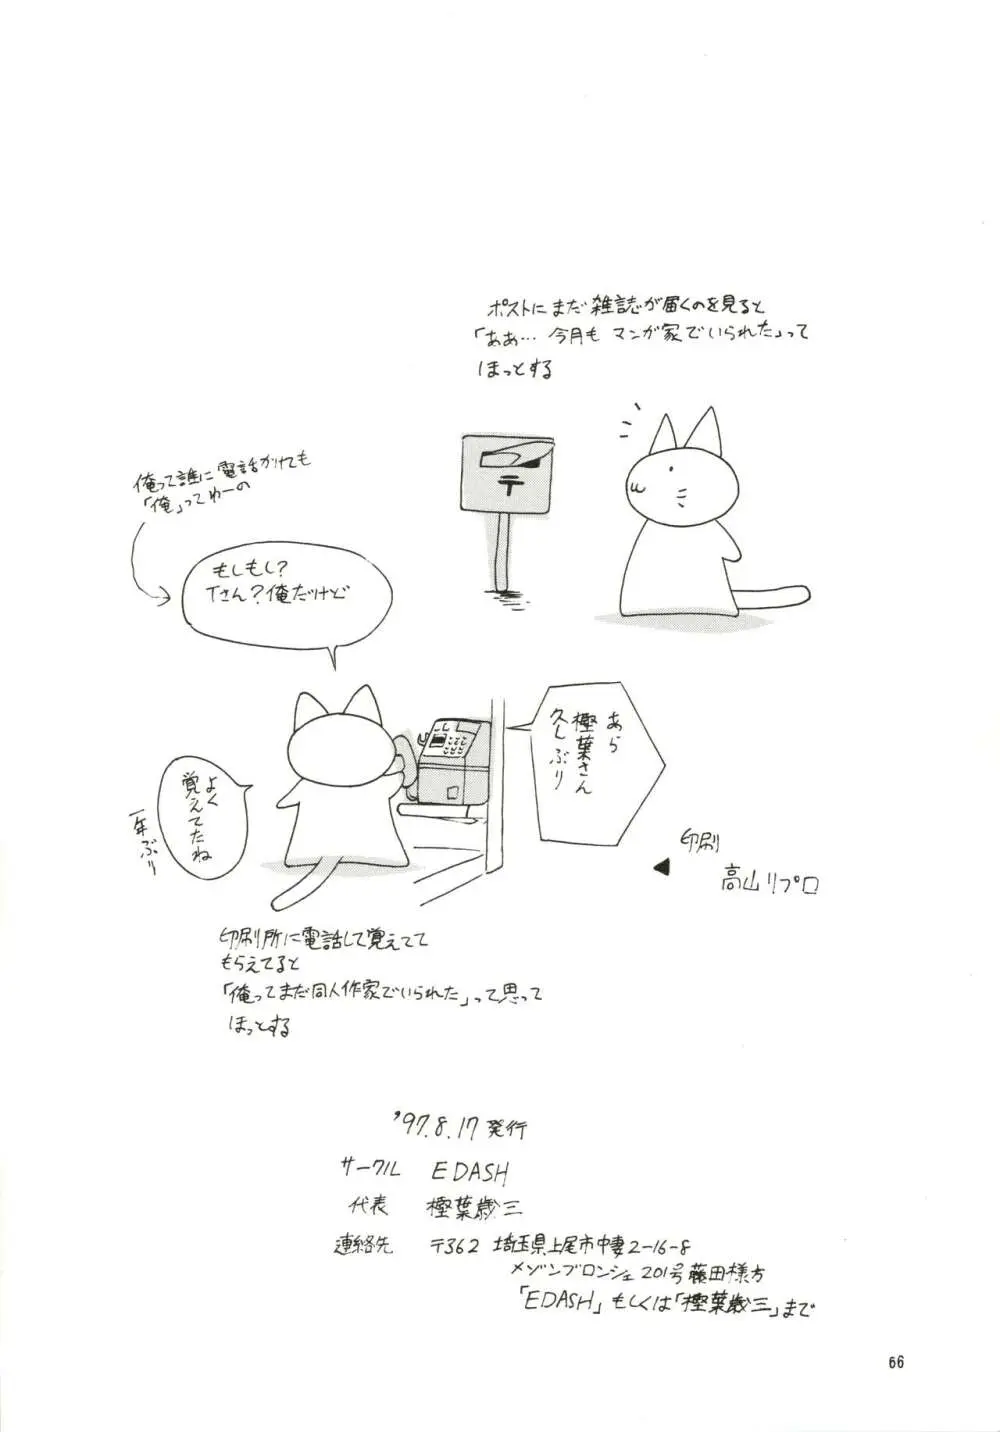 ポストにまだ雑誌が届くのを見ると
「ああ… 今月も マンガ家でいられた」って
ほっとする
〒
俺って誰に電話かけても
「俺」ってゆーの
もしもし？
Tさん？俺だけど
あら
樫葉さん
久しぶり
よく
覚えてたね
一年ぶり
印刷
高山リプロ
印刷所に電話して覚えてて
もらえてると
「俺ってまだ同人作家でいられた」って思って
ほっとする
'97.8.17 発行
サークル EDASH
代表 樫葉歳三
連絡先 〒362 埼玉県上尾市中妻2-16-8
メゾンブロンシェ201号藤田様方
「EDASH」もしくは「樫葉歳三」まで
66